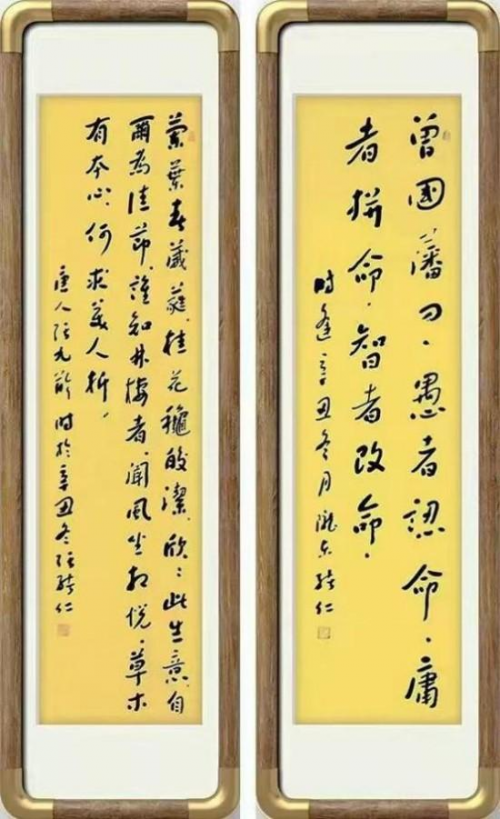 曾國藩曰、愚者認命、庸
者拼命、智者改命。
時逢辛丑冬月隴東仁
蘭葉春葳蕤、桂花穐皎潔、欣〻此生意、自
爾為佳節、誰知林棲者、聞風坐相悅、草木
有本心、何求美人折。
唐人張九齡 時於辛丑冬張仁